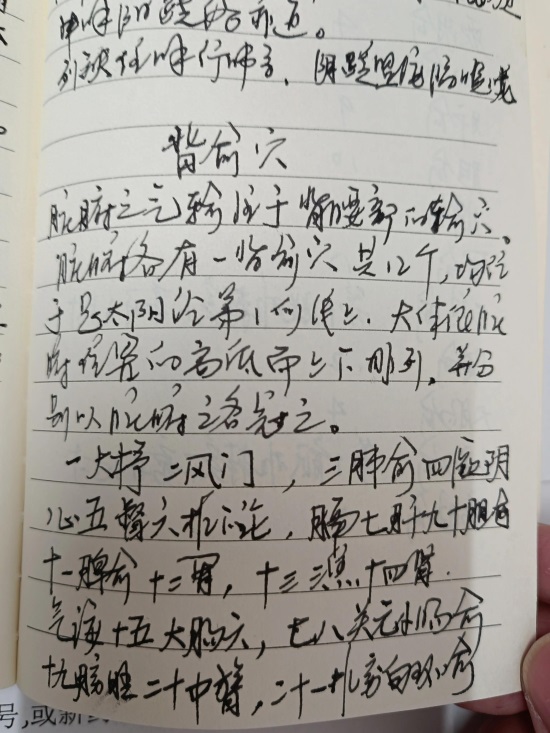 列缺任脉行肺系，阴跷照海膈喉咙
背俞穴
脏腑之气输注于背腰部的输穴。
脏腑各有一背俞穴共12个，均位
于足太阳经第1侧线上，大体依脏
腑位置的高低而上下排列，并分
别以脏腑之名冠之。
一大杼二风门，三肺俞四厥阴
心五督六 论，膈七肝九十胆俞
十一脾俞十二胃，十三三焦十四肾．
气海十五大肠六，七八关元小肠俞
十九膀胱二十中膂，二十一 白环俞
号，或新